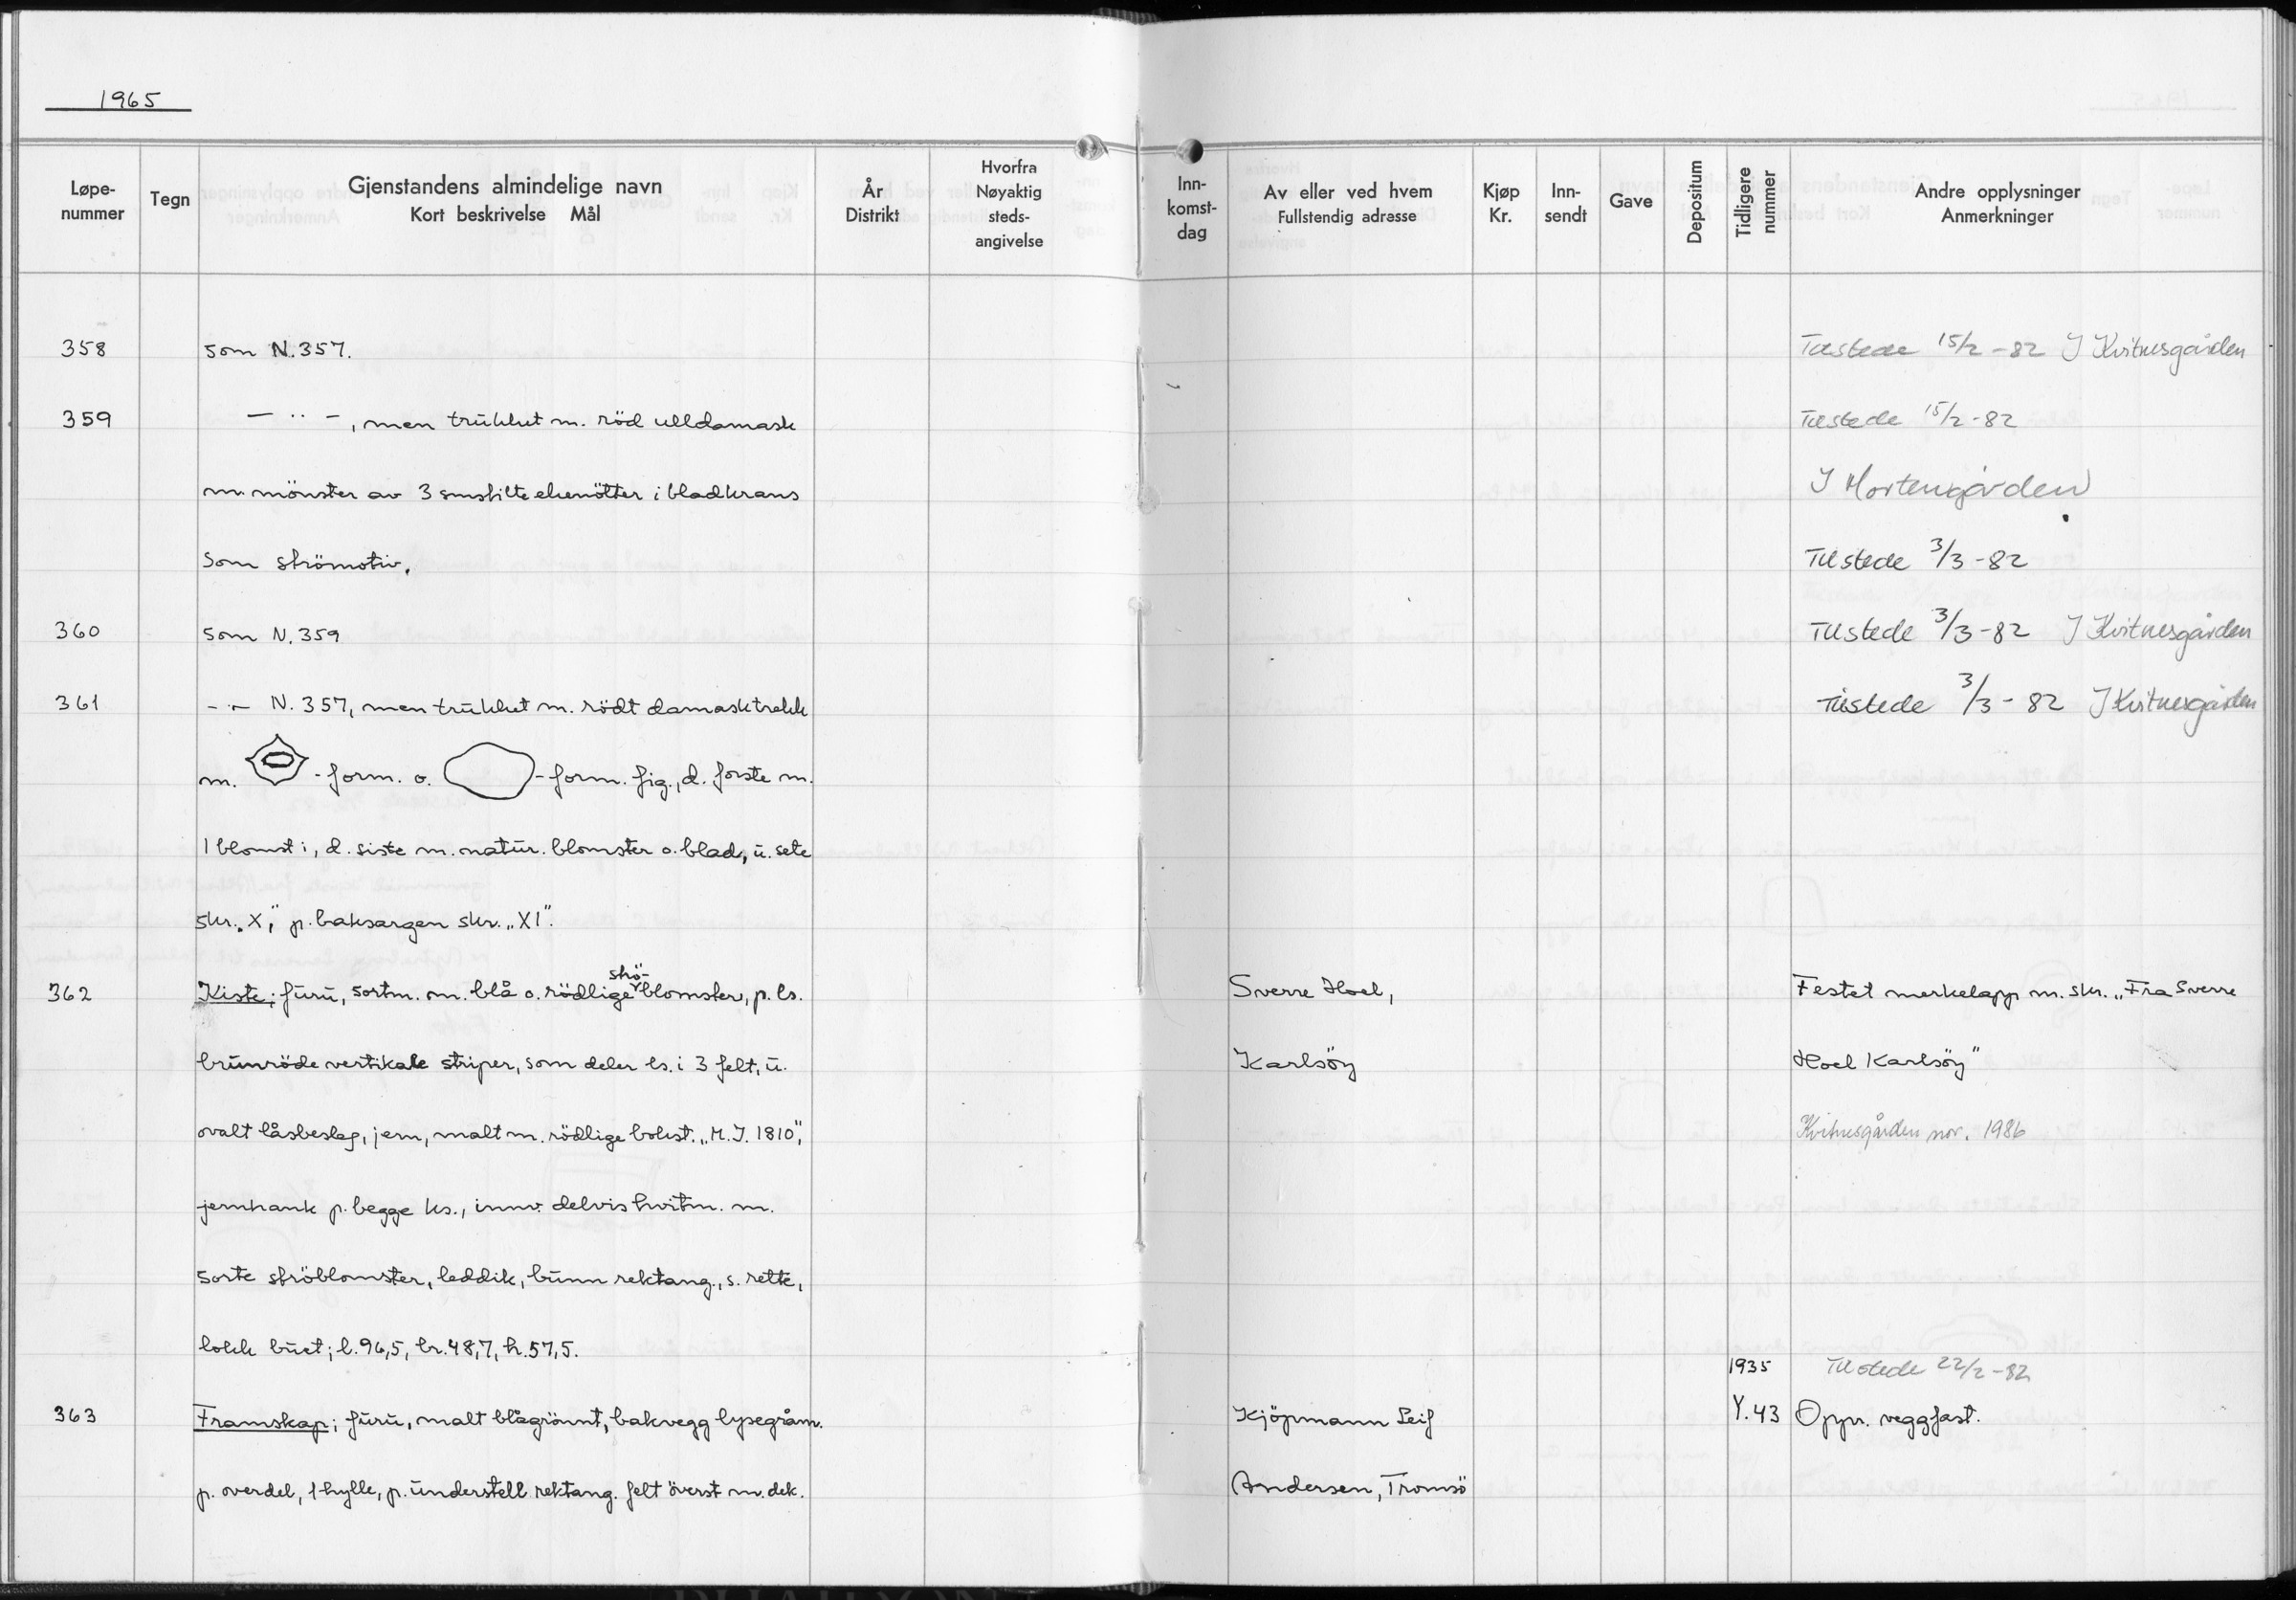 1965
Løpe-nummer Tegn Gjenstandens almindelige navn Kort beskrivelse Mål År Distrikt Hvorfra Nøyaktig steds-angivelse Inn-komst-dag Av eller ved hvem Fullstendig adresse Kjøp Kr. Inn-sendt Gave Depositum Tidligere nummer Andre opplysninger Anmerkninger
358 som N.357. Tilstede 15/2-82 I Kvitnesgården
359 — ·· —, men trukket m. röd ulldamask Tilstede 15/2-82
m. mönster av 3 småstilte ekenötter i bladkrans I Mortengården
som strömotiv. Tilstede 3/3-82
360 som N.359 Tilstede 3/3-82 I Kvitnesgården
361 -··- N.357, men trukket m. rödt damasktrekk Tilstede 3/3-82 I Kvitnesgården
m. -form. o. -form. fig., d. første m.
1 blomst i, d. siste m. natur. blomster o. blad, u. sete
skr. „X", p. baksargen skr. „XI".
362 Kiste; furu, sortm. m. blå o. rödlige strö-blomster, p. ls. Sverre Hoel, Festet merkelapp m. skr. „Fra Sverre
brunröde vertikale striper, som deler ls. i 3 felt, u. Karlsöy Hoel Karlsöy"
ovalt låsbeslag, jern, malt m. rödlige bokst. „M.J. 1810", Kvitnesgården nov. 1986
jernhank p. begge ks., innv. delvis hvitm. m.
sorte ströblomster, leddik, bunn rektang., s. rette,
lokk buet; l.96,5, br.48,7, h.57,5.
1935 Tilstede 22/2-82
363 Framskap; furu, malt blågrönnt, bakvegg lysegråm. Kjöpmann Leif Y.43 Oppr. veggfast.
p. overdel, 1 hylle, p. understell rektang. felt överst m. dek. Andersen, Tromsö